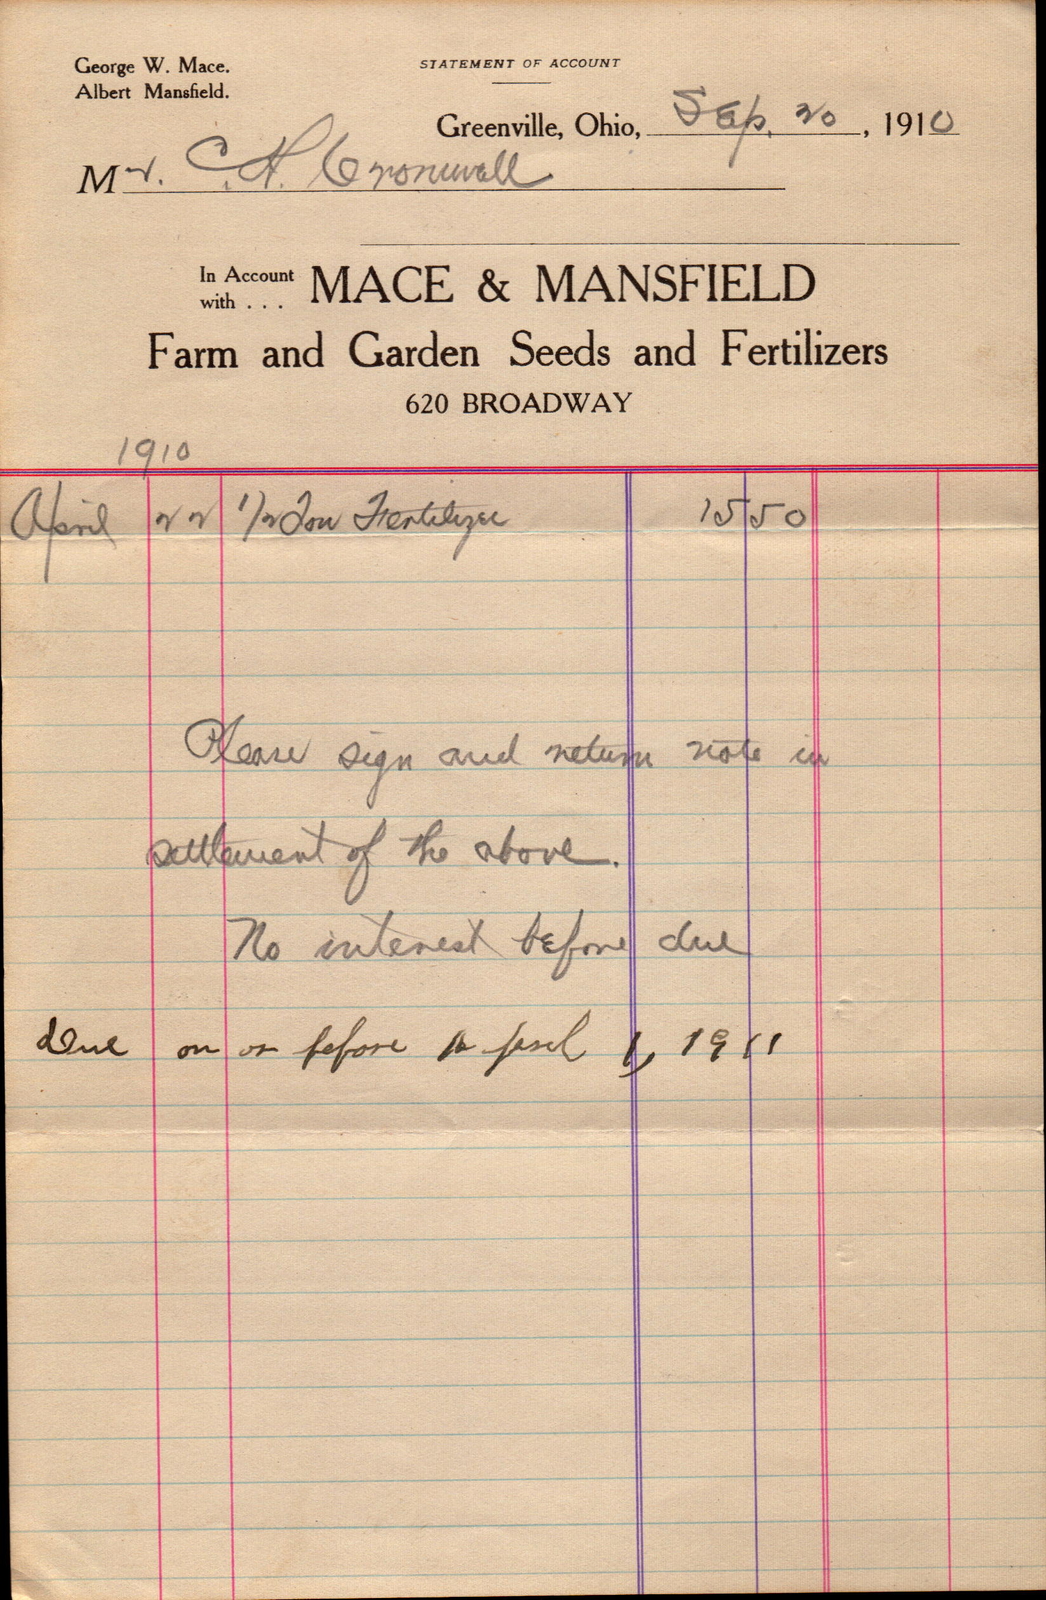 George W. Mace.
Albert Mansfield.
STATEMENT OF ACCOUNT
Greenville, Ohio, Sep. 20, 1910
Mr. C. H. Cromwell
In Account with . . . MACE & MANSFIELD
Farm and Garden Seeds and Fertilizers
620 BROADWAY
1910
April 22 1/2 Ton Fertilizer 15 50
Please sign and return note in
settlement of the above.
No interest before due
due on or before April 1, 1911